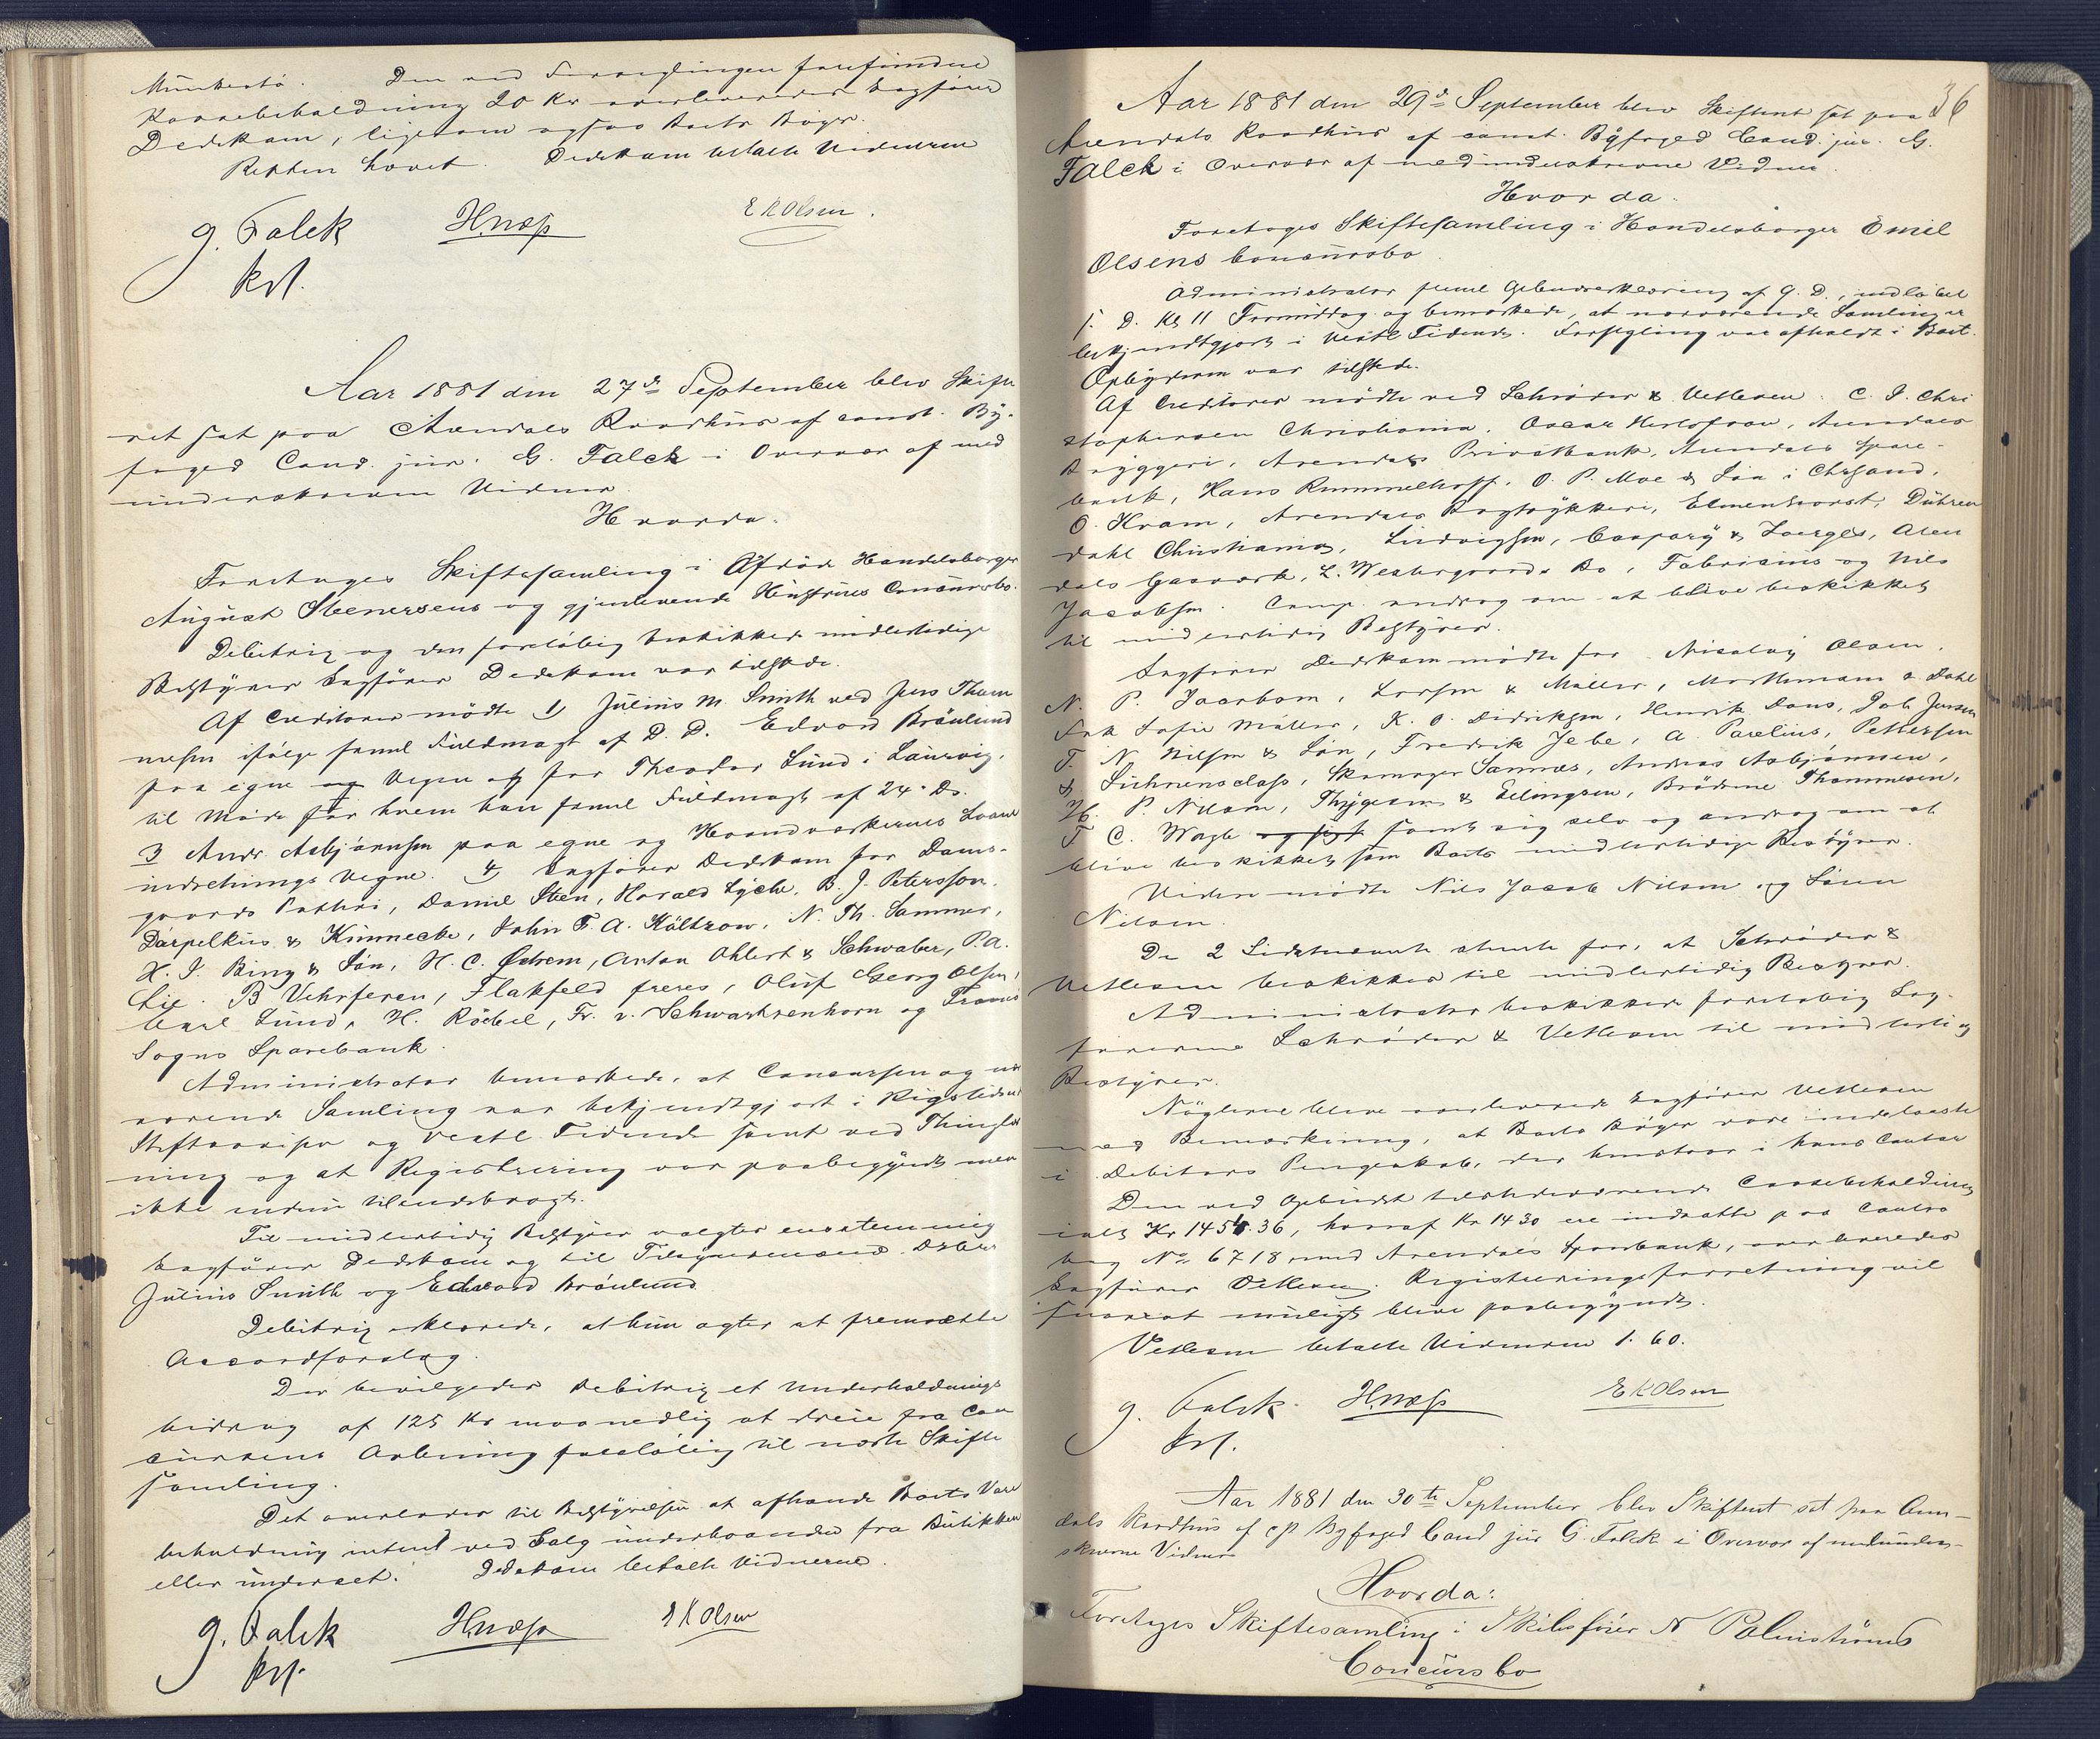 Den ved Forseglingen forefundne
Kassebeholdning 20 Kr overleveredes Sagfører
Dedekam, ligesom ogsaa Boets Bøger.
Retten hævet. Dedekam betalte Vidnerne
G. Falck H. Næss E K Olsen.
kst.
Aar 1881 den 27de September blev Skifte
ret sat paa Arendals Raadhus af const. By-
foged Cand. jur. G. Falck i Overvær af med
underskrevne Vidner.
Hvorda.
Foretoges Skiftesamling i Afdøde Handelsborger
August Steenersens og gjenlevende Hustrues Concursbo.
Debitrix og den foreløbig beskikkede midlertidige
Bestyrer Sagfører Dedekam var tilstede.
Af Creditorer mødte 1) Julius M. Smith ved Jens Thom
mesen ifølge freml Fuldmagt af D. D. Edvard Bräunlund
paa egne og Vegne og for Theodor Lund i Laurvig,
til Møde for hvem han freml Fuldmagt af 24. Ds.
3 Andr. Asbjørnsen paa egne og Haandværkernes Laane
indretnings Vegne. 4) Sagfører Dedekam for Dams-
gaards Fabrik, Daniel Steen, Harald Lyche, B. J. Petersson,
Dürpelkus & Kinnecke, John F. A. Költzow, N. Th. Sammer,
H. J. Bing & Søn, H. C. Østrem, Anton Ohlert & Schwaber, P. A.
Lie. B Vehrferen, Flakfeld freres, Oluf Georg Olsen,
Carl Lund, H. Röebel, Fr. v. Schwartzenhorn og Tromø
Sogns Sparebank.
Administrator bemærkede, at Concursen og nær
værende Samling var bekjendtgjort i Rigstidende
Stiftsavisen og Vestl Tidende samt ved Thinglæs
ning og at Registrering var paabegyndt men
ikke endnu tilendebragt.
Til midlertidig Bestyrer valgtes enstemmig
Sagfører Dedekam og til Tilsynsmænd
Julius Smith og Edvard Bräunlund
Debitrix erklærede, at hun agter at fremsætte
Accordforslag.
Der bevilgedes Debitrix et Underholdnings
bidrag af 125 Kr maanedlig at dreie fra Con
cursens Aabning foreløbig til næste Skifte
samling.
Det overlodes til Bestyrelsen at afhænde Boets Vare
beholdning intent ved Salg underhaanden fra Butikken
eller underset. Dedekam betalte Vidnerne.
G. Falck H. Næss E K Olsen
kst.
36
Aar 1881 den 29de September blev Skifteret sat paa
Arendals Raadhus af const. Byfoged Cand. jur. G.
Falck i Overvær af medunderskrevne Vidner.
Hvorda.
Foretoges Skiftesamling i Handelsborger Emil
Olsens Concursbo.
Administrator freml Opbudserklæring af G. D., indløbet
s. D. Kl 11 Formiddag og bemærkede, at nærværende Samling er
bekjendtgjort i Vestl Tidende. Forsegling var afholdt i Boet.
Opbyderen var tilstede.
Af Creditorer mødte ved Schrøder & Vetlesen. C. J. Chri
stophersen Christiania, Oscar Herlofson, Arendals
Bryggeri, Arendals Privatbank, Arendals Spare-
bank, Hans Rummelhoff, O. P. Moe & Søn i Chrsand,
O. Kram, Arendals Bogtrykkeri, Elmenhorst, Dühren
dahl Christiania, Ludvigsen, Caspary & Joerges, Aren
dals Gasværk, L. Westergaards Bo, Fabricius og Nils
Jacobsen. Comp. androg om at blive beskikket
til midlertidig Bestyrer.
Sagfører Dedekam mødte for Nicolay Olsen,
N. P. Jacobsen, Larsen & Møller, Morthmann & Dahl
Frk Sofie Møller, K. O. Didriksen, Henrik Dons, Job Jensen
T. N. Nilsen & Søn, Fredrik Jebe, A. Paulius, Pettersen
& Lührensclass, Skomager Sannæs, Andreas Asbjørnsen,
H. P. Nilsen, Thygesen & Ellingsen, Brødrene Thommesen,
F C. Wagle samt sig selv og androg om at
blive beskikket som Boets midlertidige Bestyrer.
Videre mødte Nils Jacob Nilsen og Søren
Nilsen.
De 2 Sidstnævnte stemte for, at Schrøder &
Vetlesen beskikkes til midlertidig Bestyrer.
Administrator beskikkede foreløbig Sag-
førerne Schrøder & Vetlesen til midlertidig
Bestyrer.
Nøglerne bleve overleverede Sagfører Vetlesen
med Bemærkning, at Boets Bøger vare indelaaste
i Debitors Pengeskab, der henstaar i hans Contor
Den ved Opbudet tilstedeværende Cassebeholdning
ialt Kr 1454.36, hvoraf Kr 1430 ere indsatte paa Contra
bog No 6718 med Arendals Sparebank, overleveredes
Sagfører Vetlesen. Registreringsforretning vil
snarest muligt blive paabegyndt.
Vetlesen betalte Vidnerne 1.60.
G. Falck. H. Næss E K Olsen
kst.
Aar 1881 den 30te September blev Skifteret sat paa Aren-
dals Raadhus af cst Byfoged Cand jur G. Falck i Overvær af medunder-
skrevne Vidner
Hvorda:
Foretoges Skiftesamling i Skibsfører N Palmstrøms
Concursbo